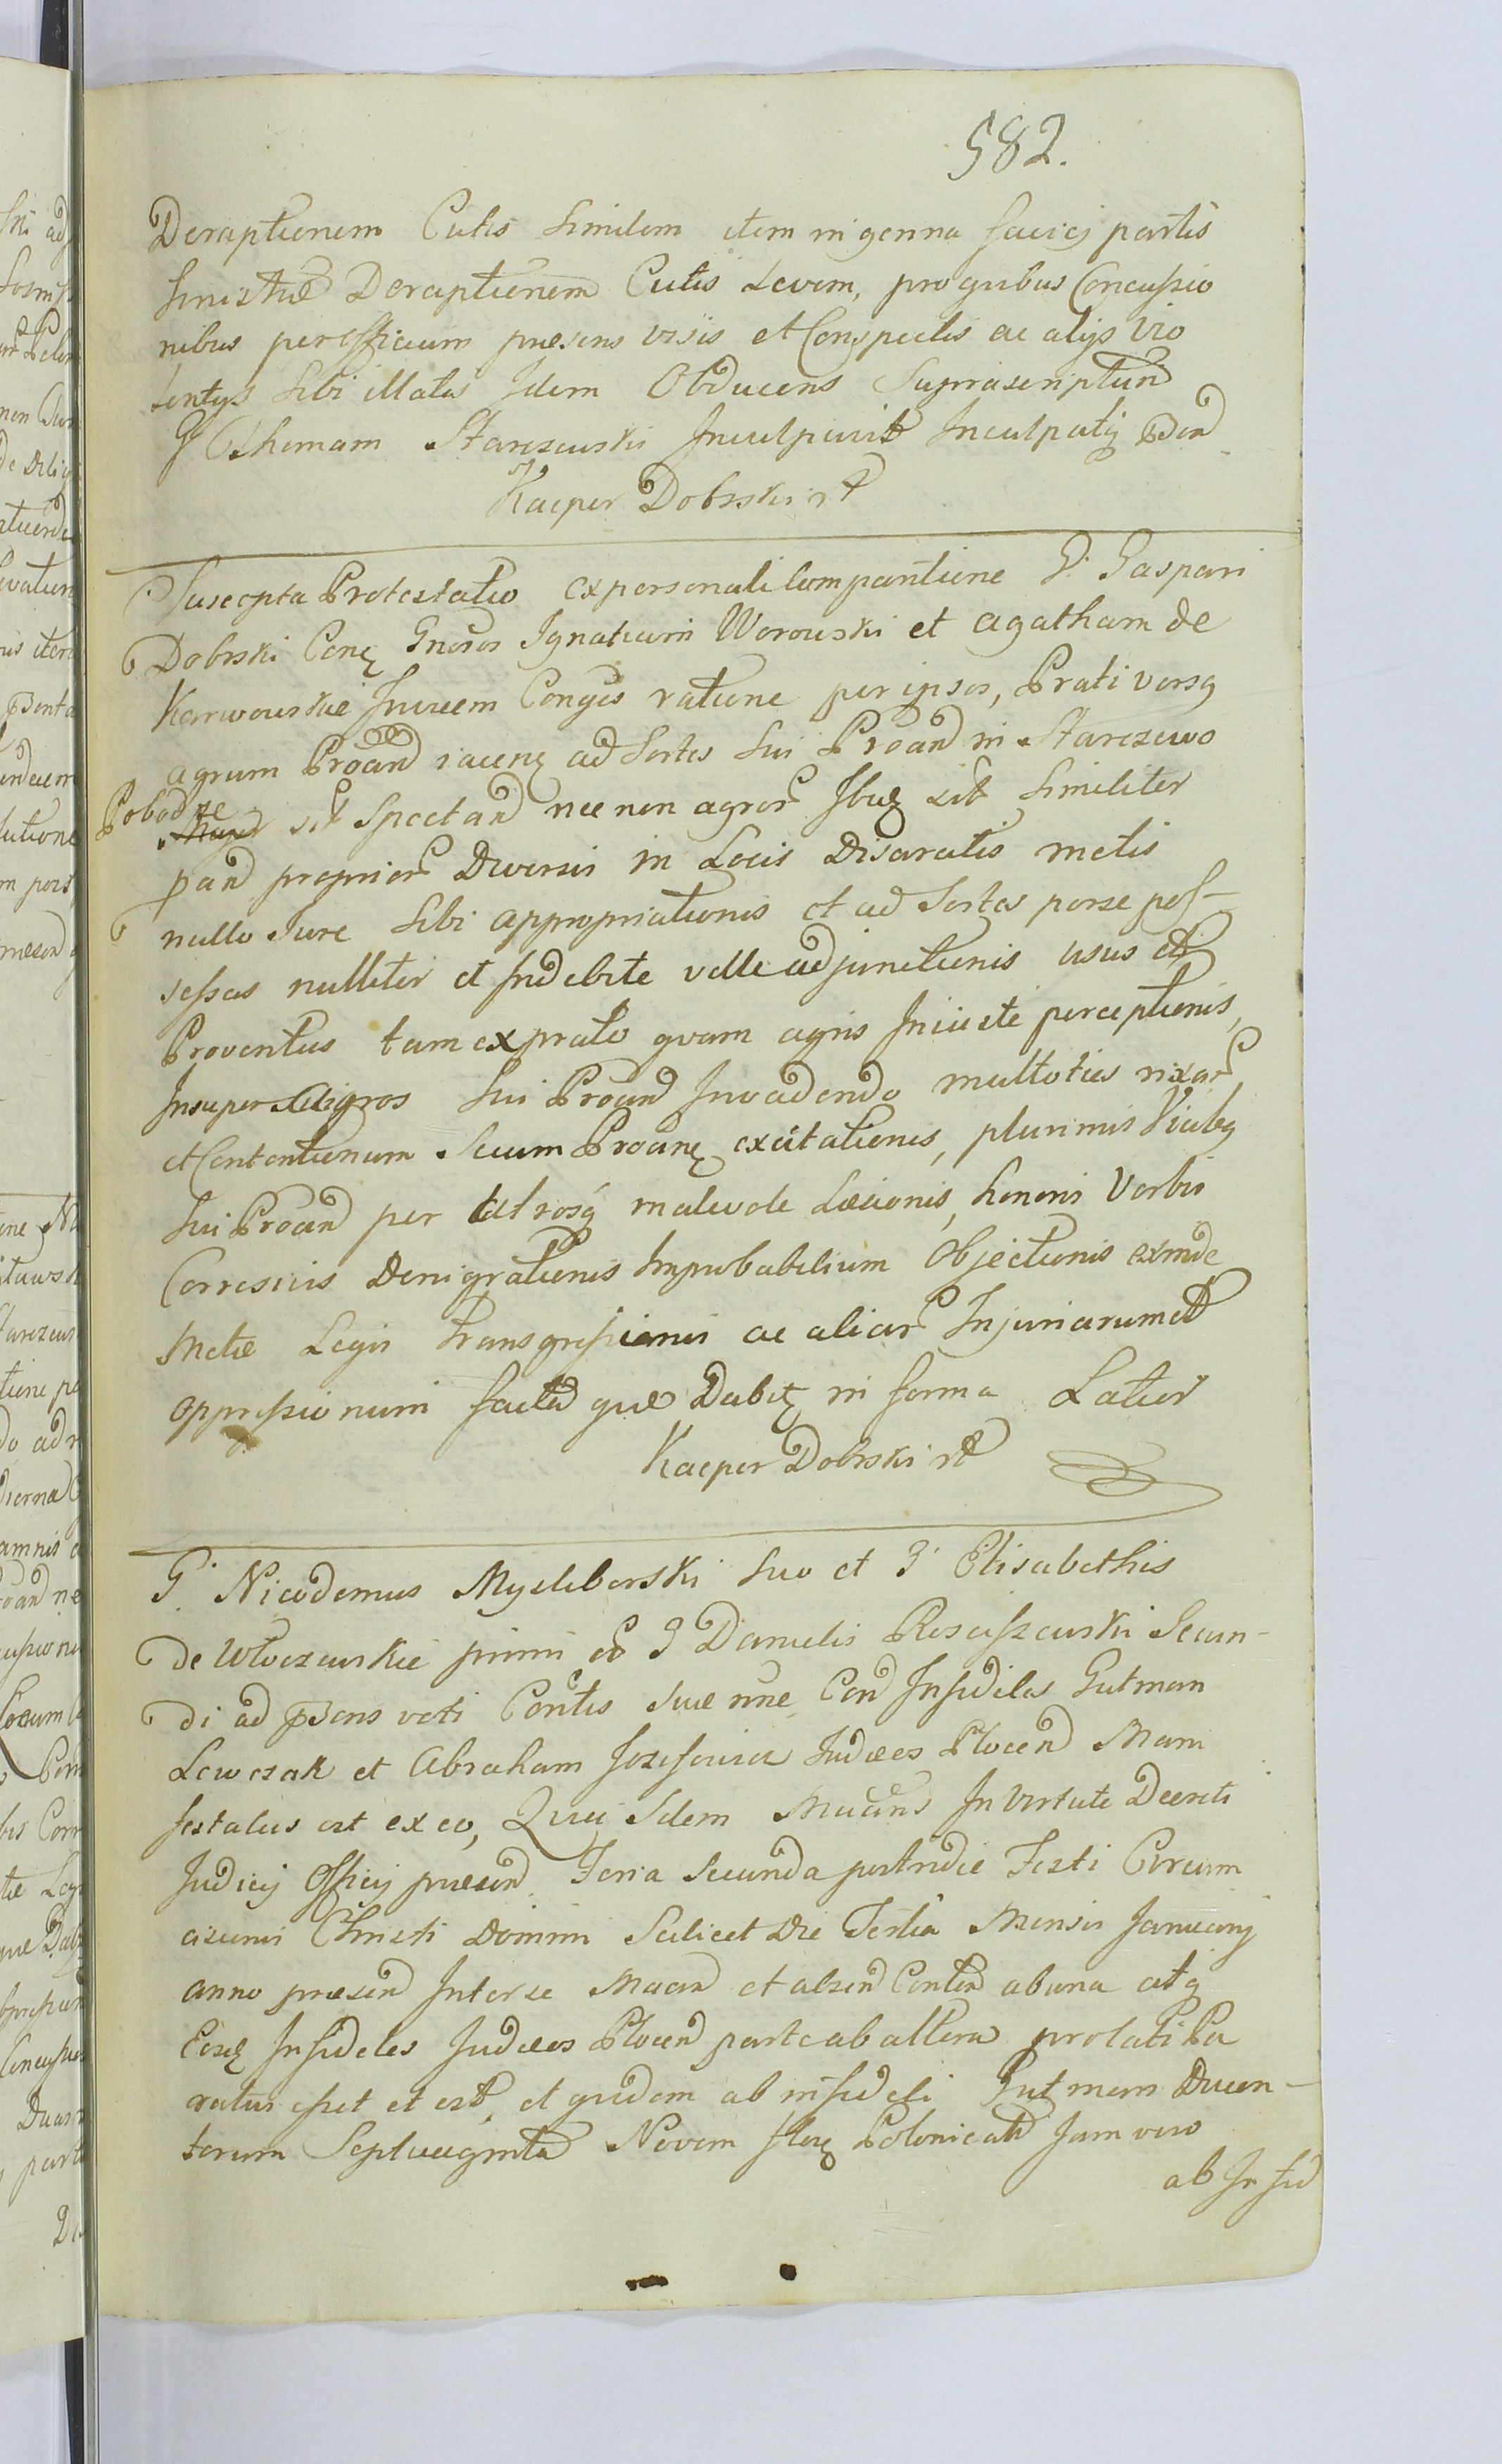 582.
Deraptionem Cutis similem item in genna faciej partis
sinistræ Deraptionem Cutis Levem, pro quibus Concussio
nibus per Officium præsens visis et Conspectis ac alijs Vio
lentijs sibi illatis Idem Obducens Suprascriptum
G Thomam Starczewski Inculpavit
Kacper Dobrski
Suscepta Protestatio ex personali Comparitione G. Gaspari
Dobrski Gnosos Ignatium Worowski et Agatham de
Karwowskie Invicem Conges ratione per ipsos, Prati versq
agrum Proand iacen ad Sortes Sui Proand in Starczewo
Pobodze sit Spectand nec non agror Ibid sit Similiter
pand proprior Diversis in Locis Disaratis metis
nullo Jure Sibi appropriationis et ad Sortes per se pos-
sessas nulliter et Indebite velle adjunctionis usus et
Proventus tam ex prato quam agris Iniuste perceptionis,
Insuper Agros Sui Proand Invadendo multoties rixar
et Contentionum Secum Proan excitationis, plurimis Vicibq
Sui Proand per atrosq malevole Læsionis, honoris Verbis
Corrosivis Denigrationis Improbabilium Objectionis exinde
Metæ Legis transgressionis ac aliar Injuriarum et
oppressionum fact quæ Dabit in forma Latior
Kacper Dobrski
G. Nicodemus Mysliborski Suo et G Elisabethis
de Wloczewskie primi et G Danielis Rosciszewski Secun-
di ad psens voti Contis suæ nne Con Infideles Gutman
Lewczak et Abraham Jozefowicz Judæos Plocen Mani
festatus est ex eo, Quia Idem Macans In Virtute Decreti
Judicij Officij præsen Feria Secunda postridie Festi Circum
cisionis Christi Domini Scilicet Die Tertia Mensis Januarij
anno præsen Inter se Macan et absen Conten ab una atq
Eosd Infideles Judæos Plocen parte ab altera prolati Pa
ratus esset et est, et quidem ab infideli Gutman Ducen-
torum Septuaginta Novem flor Polonicali Jam vero
ab Infid